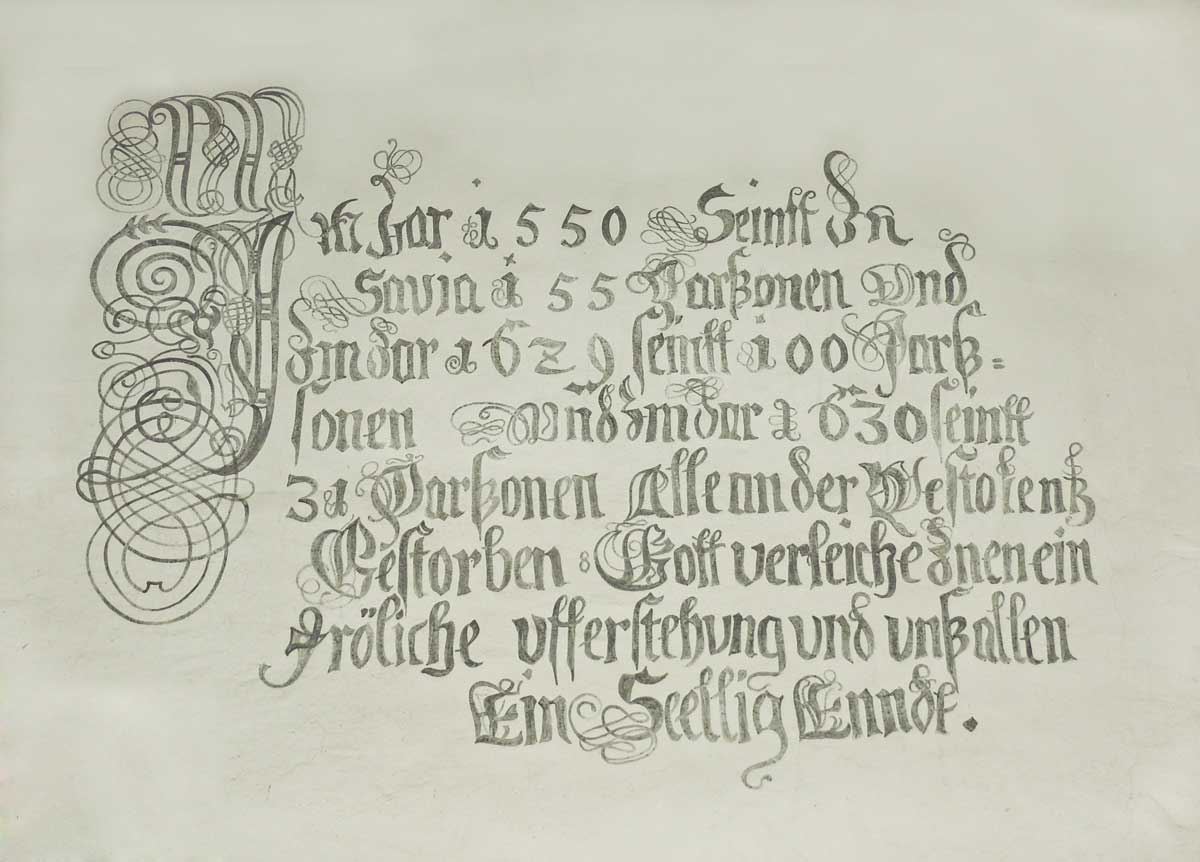 Im Jar 1550 Seintt In
Savia 155 Parßonen Und
Im Jar 1629 seintt 100 Parß=
sonen Und Im Jar 1630 seintt
31 Parßonen Alle an der Pestolentz
Gestorben: Gott verleiche Inen ein
Fröliche ufferstehung und unß allen
Ein Seellig Enndt.